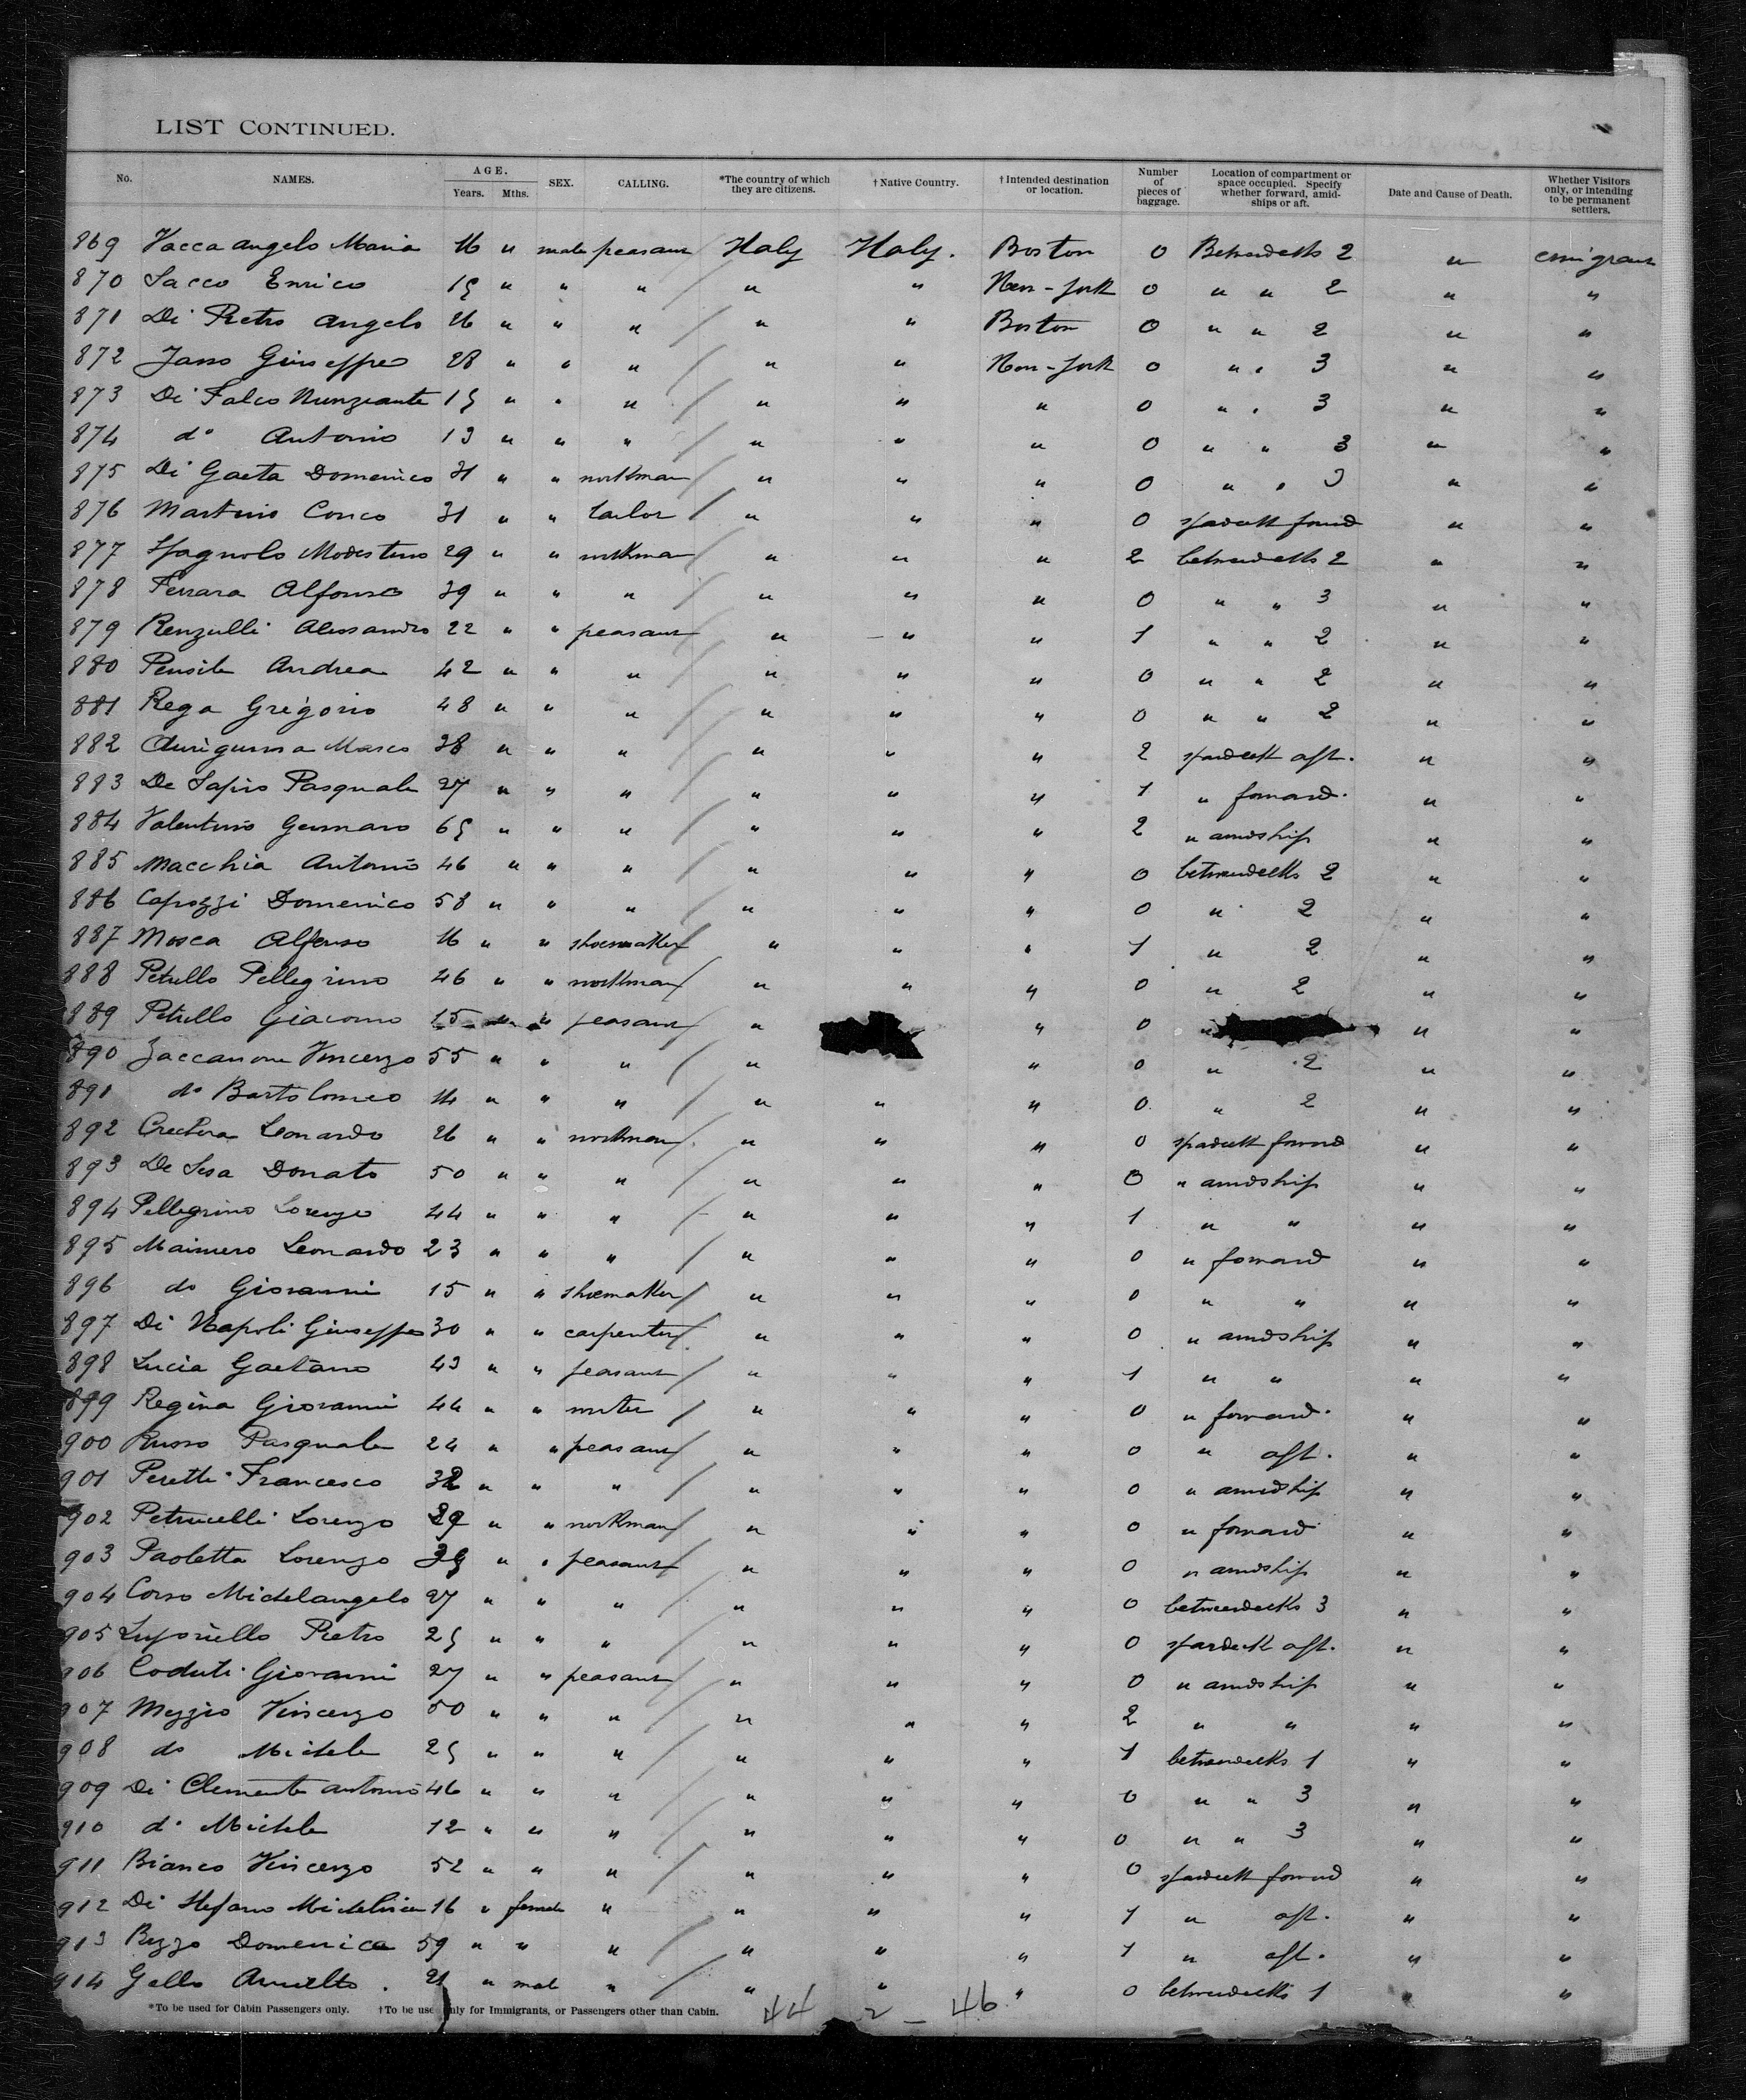 LIST CONTINUED.
No. NAMES. AGE. Years. Mths. SEX. CALLING. *The country of which they are citizens. †Native Country. †Intended destination or location. Number of pieces of baggage. Location of compartment or space occupied. Specify whether forward, amidships or aft. Date and Cause of Death. Whether Visitors only, or intending to be permanent settlers.
869 Vacca Angelo Maria 16 " male peasant Italy Italy. Boston 0 Betweendecks 2 " emigrant
870 Sacco Enrico 15 " " " " " New-York 0 " " 2 " "
871 Di Pietro Angelo 26 " " " " " Boston 0 " " 2 " "
872 Giuseppe 28 " " " " " New-York 0 " " 3 " "
873 Di Falco Nunziante 15 " " " " " " 0 " " 3 " "
874 do Antonio 13 " " " " " " 0 " " 3 " "
875 Di Gaeta Domenico 31 " " workman " " " 0 " " 3 " "
876 Martino 31 " " tailor " " " 0 spardeck forward " "
877 Spagnolo Modestino 29 " " workman " " " 2 betweendecks 2 " "
878 Ferrara Alfonso 39 " " " " " " 0 " " 3 " "
879 Renzulli Alessandro 22 " " peasant " " " 1 " " 2 " "
880 Pensile Andrea 42 " " " " " " 0 " " 2 " "
881 Rega Gregorio 48 " " " " " " 0 " " 2 " "
882 Marco 38 " " " " " " 2 spardeck aft. " "
883 De Sapio Pasquale 27 " " " " " " 1 " forward. " "
884 Valentino Gennaro 65 " " " " " " 2 " amidship " "
885 Macchia Antonio 46 " " " " " " 0 betweendecks 2 " "
886 Capozzi Domenico 58 " " " " " " 0 " 2 " "
887 Mosca Alfonso 16 " " shoemaker " " " 1 " 2 " "
888 Petrillo Pellegrino 46 " " workman " " " 0 " 2 " "
889 Petrillo Giacomo 15 " " peasant " " 0 " " "
890 Zaccarone Vincenzo 55 " " " " " 0 " 2 " "
891 do Bartolomeo 14 " " " " " " 0 " 2 " "
892 Leonardo 26 " " workman " " " 0 spardeck forward " "
893 De Sesa Donato 50 " " " " " " 0 " amidship " "
894 Pellegrino Lorenzo 44 " " " " " " 1 " " " "
895 Mainiero Leonardo 23 " " " " " " 0 " forward " "
896 do Giovanni 15 " " shoemaker " " " 0 " " " "
897 Di Napoli Giuseppe 30 " " carpenter " " " 0 " amidship " "
898 Lucia Gaetano 43 " " peasant " " " 1 " " " "
899 Regina Giovanni 44 " " " " " 0 " forward. " "
900 Russo Pasquale 24 " " peasant " " " 0 " aft. " "
901 Peretti Francesco 32 " " " " " " 0 " amidship " "
902 Petruccelli Lorenzo 29 " " workman " " " 0 " forward " "
903 Paoletta Lorenzo 35 " " peasant " " " 0 " amidship " "
904 Corso Michelangelo 27 " " " " " " 0 betweendecks 3 " "
905 Lupariello Pietro 25 " " " " " " 0 spardeck aft. " "
906 Coduti Giovanni 27 " " peasant " " " 0 " amidship " "
907 Mezzio Vincenzo 50 " " " " " " 2 " " " "
908 do Michele 25 " " " " " " 1 betweendecks 1 " "
909 Di Clemente Antonio 46 " " " " " " 0 " " 3 " "
910 do Michele 12 " " " " " " 0 " " 3 " "
911 Bianco Vincenzo 52 " " " " " " 0 spardeck forward " "
912 Di Stefano Michelina 16 " female " " " " 1 " aft. " "
913 Domenica 59 " " " " " " 1 " aft. " "
914 Gello Aniello. 21 " male " " " " 0 betweendecks 1 " "
*To be used for Cabin Passengers only. †To be used only for Immigrants, or Passengers other than Cabin. 44 2 - 46